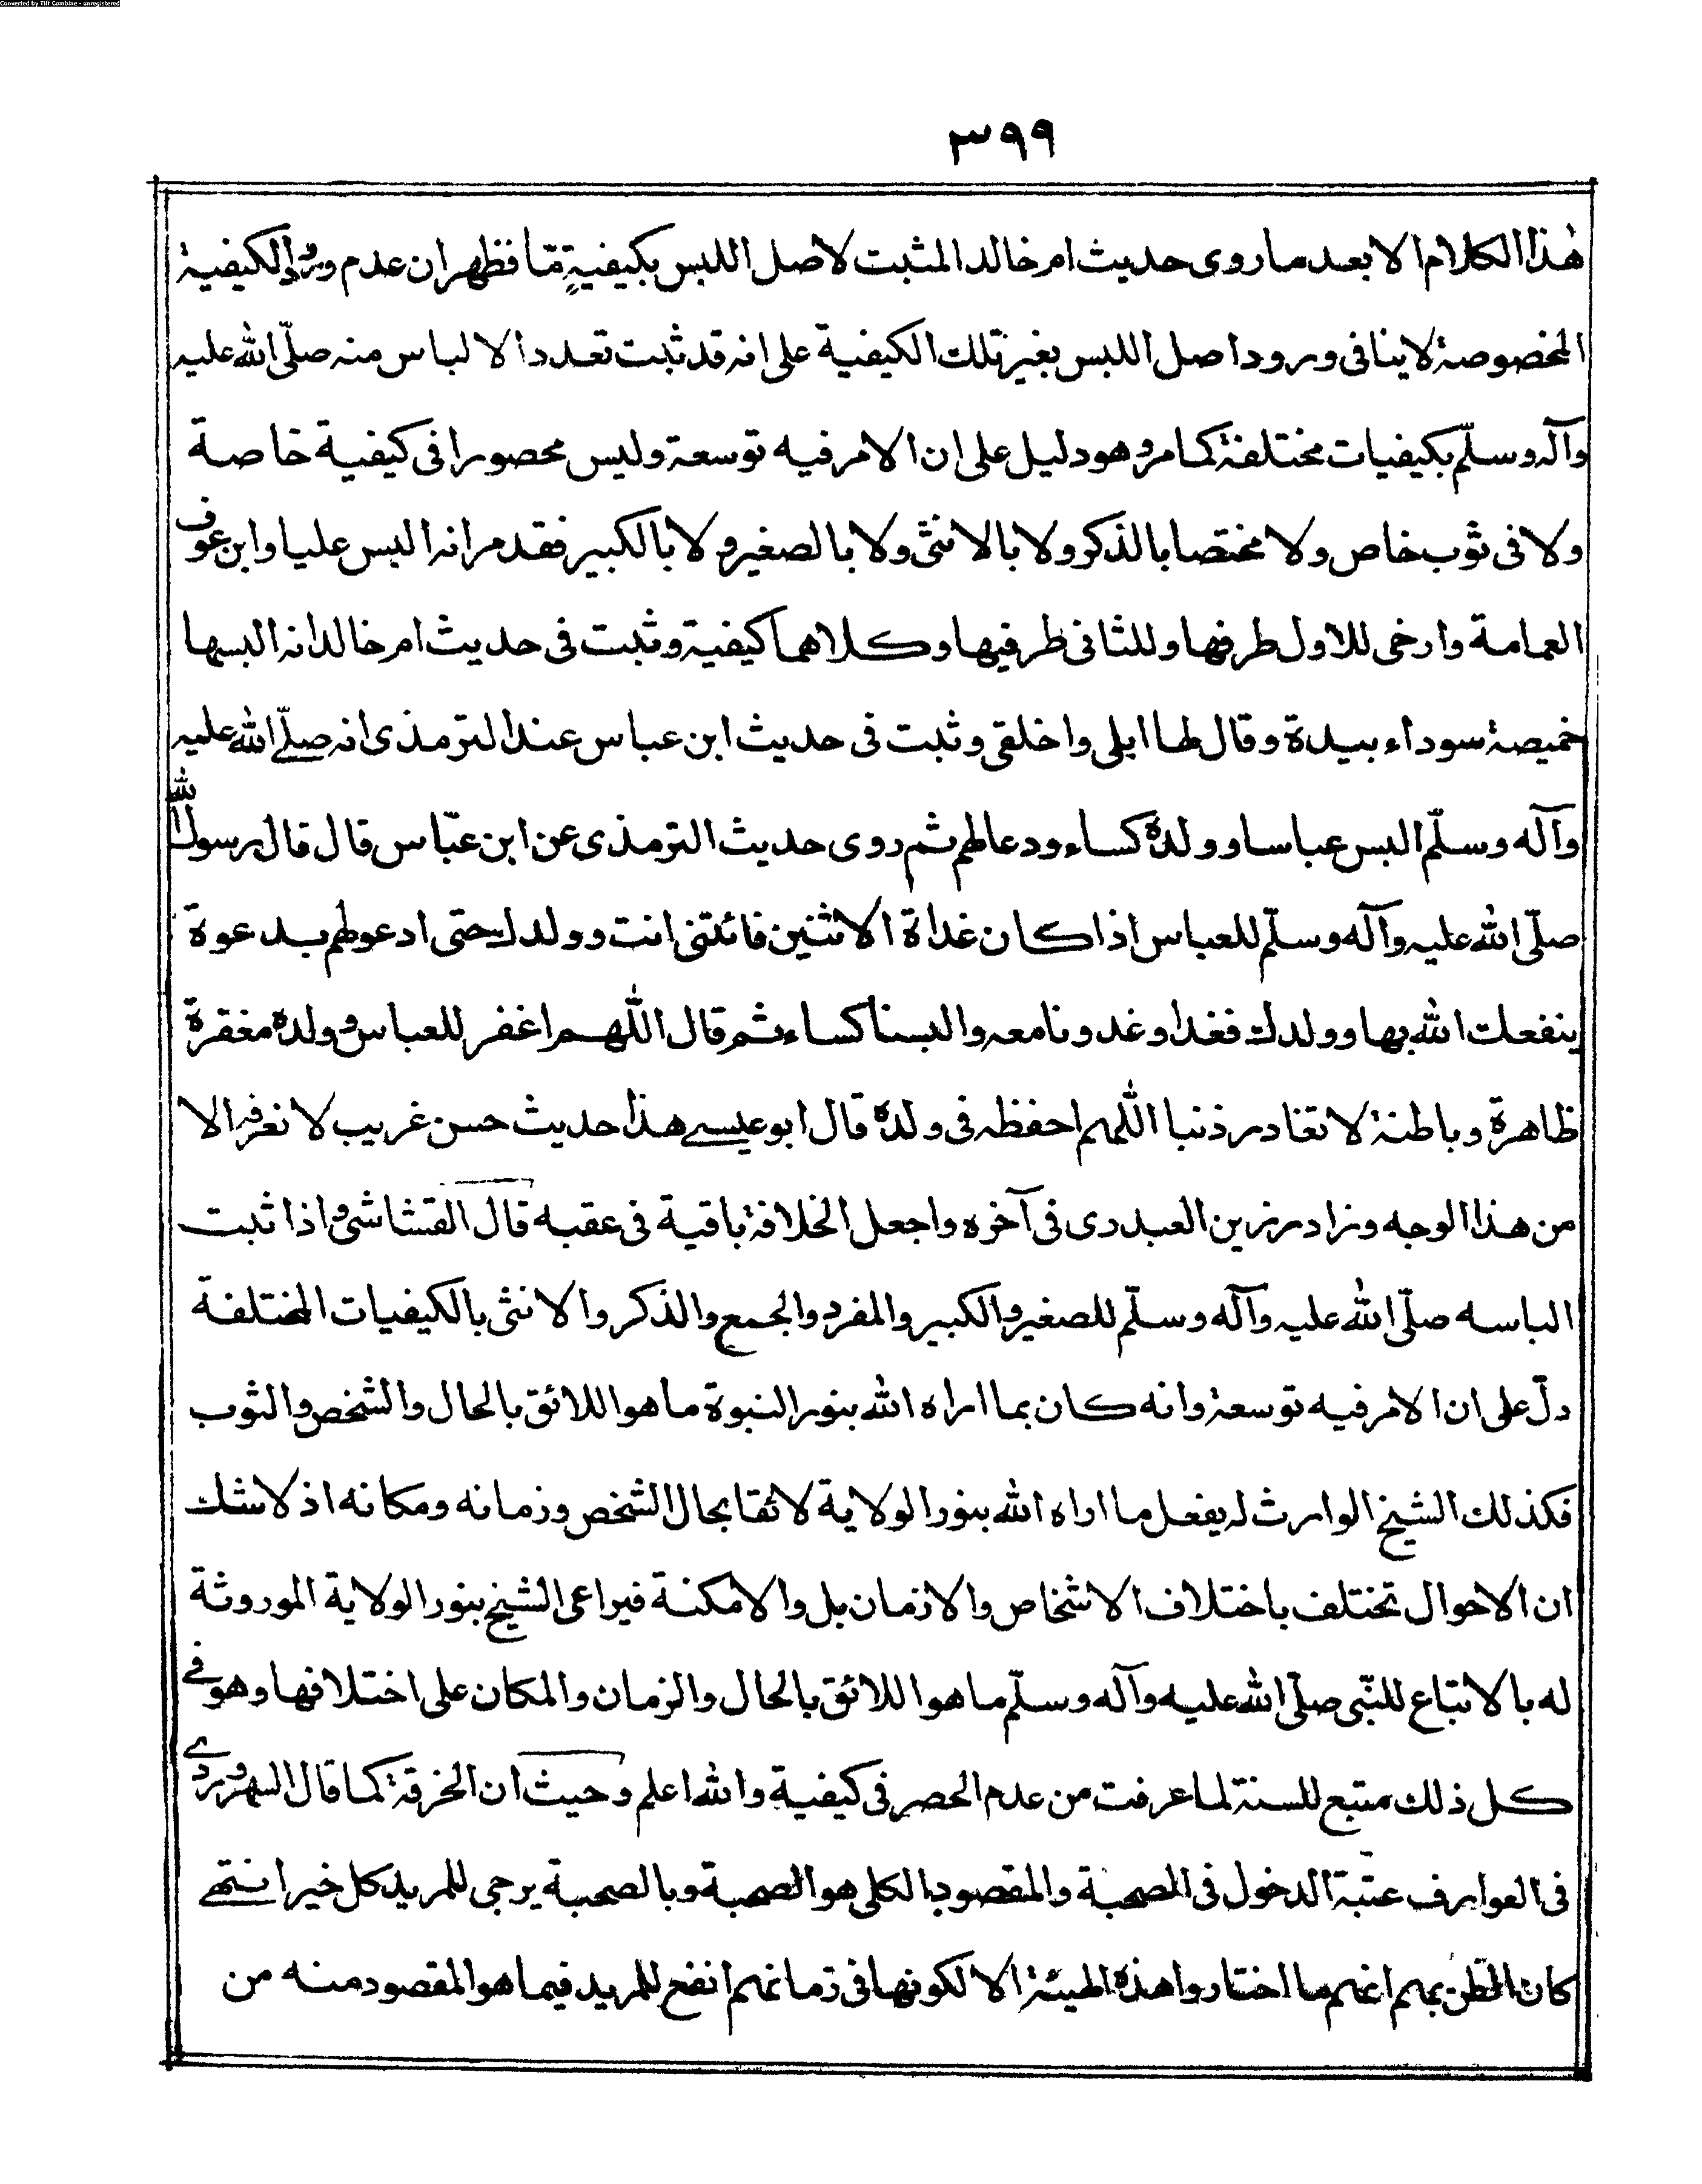 Converted by Tiff Combine - unregistered
٣٩٩
هٰذا الكلام الا بعد ما روى حديث ام خالد المثبت لاصل اللبس بكيفيةٍ مّا فظهر ان عدم ورود الكيفية
المخصوصة لا ينافى ورود اصل اللبس بغير تلك الكيفية على انه قد ثبت تعدد الالباس منه صلّى الله عليه
وآله وسلّم بكيفيات مختلفة كما مر وهو دليل على ان الامر فيه توسعة وليس محصورا فى كيفية خاصة
ولا فى ثوب خاص ولا مختصا بالذكر ولا بالانثى ولا بالصغير ولا بالكبير فقد مر انه البس عليا وابن عوف
العمامة وارخى للاول طرفها وللثانى طرفيها وكلاهما كيفية وثبت فى حديث ام خالد انه البسها
خميصة سوداء بيده وقال لها ابلى واخلقى وثبت فى حديث ابن عباس عند الترمذى انه صلّى الله عليه
وآله وسلّم البس عباسا وولده كساء ودعا لهم ثم روى حديث الترمذى عن ابن عبّاس قال قال رسول الله
صلّى الله عليه وآله وسلّم للعباس اذا كان غداة الاثنين فائتنى انت وولدك حتى ادعو لهم بدعوة
ينفعك الله بها وولدك فغدا وغدونا معه والبسنا كساء ثم قال اللّٰهم اغفر للعباس وولده مغفرة
ظاهرة وباطنة لا تغادر ذنبا اللّٰهم احفظه فى ولده قال ابو عيسى هذا حديث حسن غريب لا نعرفه الا
من هذا الوجه وزاد رزين العبدرى فى آخره واجعل الخلافة باقية فى عقبه قال القشاشى واذا ثبت
الباسه صلّى الله عليه وآله وسلّم للصغير والكبير والمفرد والجمع والذكر والانثى بالكيفيات المختلفة
دلّ على ان الامر فيه توسعة وانه كان بما اراه الله بنور النبوة ما هو اللائق بالحال والشخص والثوب
فكذلك الشيخ الوارث له يفعل ما اراه الله بنور الولاية لائقا بحال الشخص وزمانه ومكانه اذ لا شك
ان الاحوال تختلف باختلاف الاشخاص والازمان بل والامكنة فيراعى الشيخ بنور الولاية الموروثة
له بالاتباع للنّبى صلّى الله عليه وآله وسلّم ما هو اللائق بالحال والزمان والمكان على اختلافها وهو فى
كل ذلك متبع للسنة لما عرفت من عدم الحصر فى كيفية والله اعلم وحيث ان الخرقة كما قال السهروردى
فى العوارف عتبة الدخول فى الصحبة والمقصود الكلى هو الصحبة وبالصحبة يرجى للمريد كل خير انتهى
كان الظن بهم انهم ما اختاروا هذه الهيئة الا لكونها فى زمانهم انفع للمريد فيما هو المقصود منه من